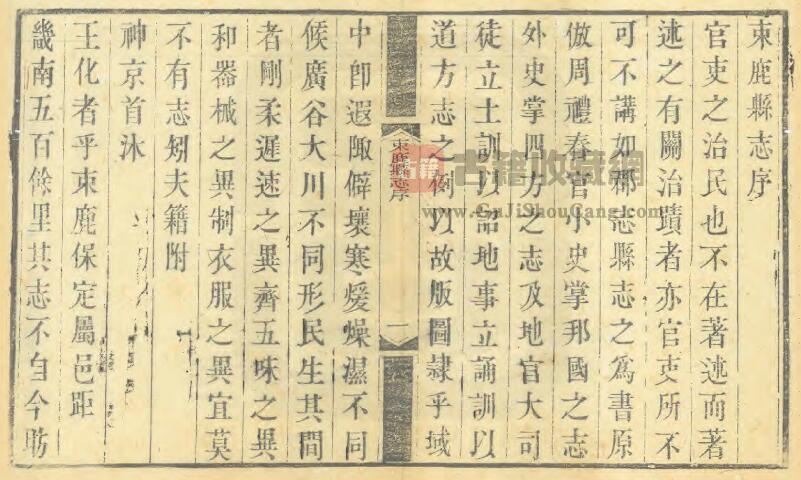 束鹿縣志序
官吏之治民也不在著述而著
述之有關治蹟者亦官吏所不
可不講如郡志縣志之為書原
倣周禮春官小史掌邦國之志
外史掌四方之志及地官大司
徒立土訓以詔地事立誦訓以
道方志之例以故版圖隸乎域
束鹿縣志序
一
中卽遐陬僻壤寒煖燥濕不同
候廣谷大川不同形民生其間
者剛柔遲速之異齊五味之異
和器械之異制衣服之異宜莫
不有志矧夫籍附
神京首沐
王化者乎束鹿保定屬邑距
畿南五百餘里其志不自今昉
古籍
古籍收藏網
www.GuJiShouCang.com